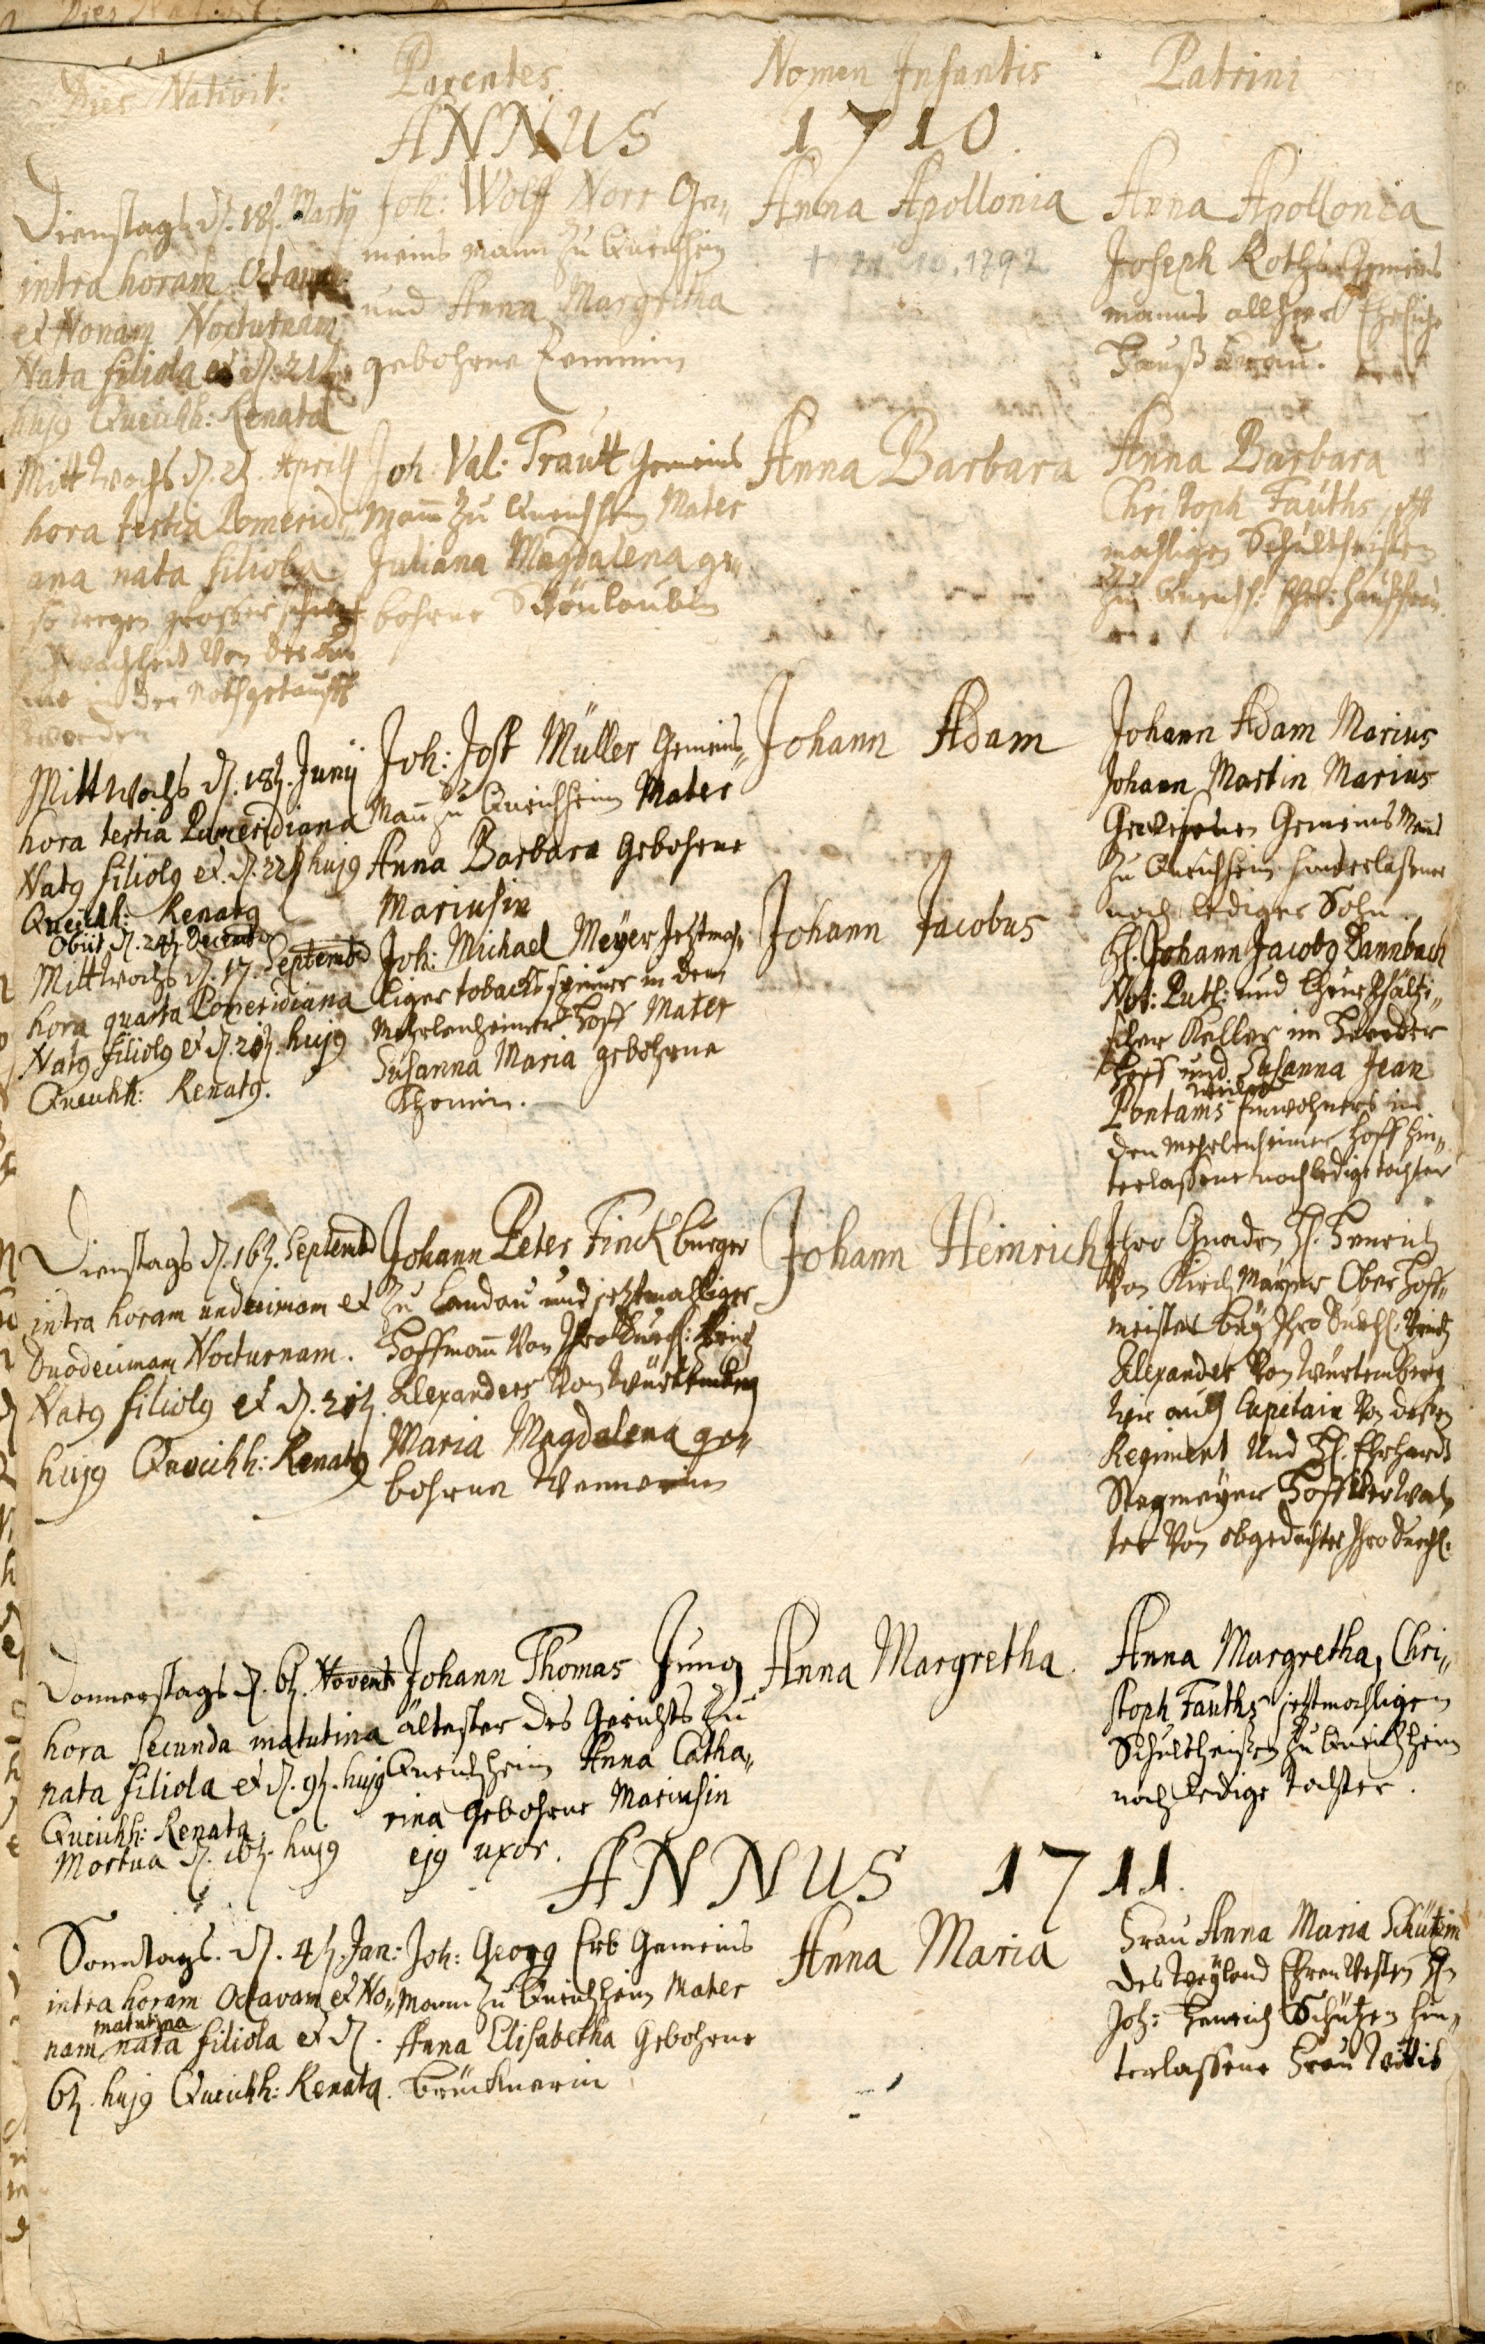 Dies Nativit: Parentes. Nomen Infantis Patrini
ANNUS 1710.
Dienstags d. 18. Martij
intra horam Octavam
et Nonam Nocturnam
Nata filiola et d. 21
hujq Queichh: Renata
Joh: Wolff Norr Ge„
meins Mann zu Queichheim
und Anna Margretha
gebohrne
Anna Apollonia
Anna Apollonia
Joseph Roths Gemeins
manns allhier Eheliche
Hauß Frau.
Mittwochs d. 2. Aprill
hora tertia Pomeridi
ana nata filiola
so wegen grosser schwach
von der
in der Nothgetaufft
worden
Joh: Val: Trautt Gemeins
Mann zu Queichheim Mater
Juliana Magdalena ge„
bohrne Schönlaubin
Anna Barbara
Anna Barbara
Christoph Fauths
mahligen Schultheisen
zu Queichh: Haußfrau
Mittwochs d. 18. Junij
hora tertia Pomeridiana
Natq filiolq et d. 22 hujq
Queichh: Renatq
Obiit d. 24 Decemb
Joh: Jost Müller Gemeins„
Mann zu Queichheim Mater
Anna Barbara Gebohrne
Mariusin
Johann Adam
Johann Adam Marius
Johann Martin Marius
Gewesenen Gemeins Manns
zu Queichheim hinderlaßener
noch lediger Sohn.
Mittwochs d. 17. Septembr
hora quarta Pomeridiana
Natq filiolq et d. 21. hujq
Queichh: Renatq.
Joh: Michael Meyer Jetztmah„
liger tobacks spinner in dem
Mehrlenheimer Hoff Mater
Susanna Maria gebohrne
Thomin.
Johann Jacobus
H. Johann Jacobq Dannbach
Not: Publ: und
Keller im
Hoff und Susanna Jean
weiland
Pontams Einwohners in
den Mehrlenheimer Hoff hin„
terlassene noch ledige tochter
Dienstags d. 16. Septembr
intra horam undecimam et
Duodecimam Nocturnam.
Natq filiolq et d. 21.
hujq Queichh: Renatq
Johann Peter Finck burger
zu Landau und jetztmahliger
Hoffmann von Ihro Durchl: Printz
Alexanders von Würtemberg
Maria Magdalena ge„
bohrne Wennerin
Johann Heinrich
Ihro Gnaden H. Henrich
von Kirch Mayer Ober Hoff„
meister bey Ihro Durchl. Printz
Alexander von Würtemberg
wie auch Capitain von deßen
Regiment Und H. Ehrhardt
Stegmeyer Hoff Verwal„
ter von obgedachter Ihro Durchl.
Donnerstags d. 6. Novembr
hora secunda matutina
nata filiola et d. 9. hujq
Queichh: Renata
Mortua d. 16. hujq
Johann Thomas Jung
ältester des Gerichts zu
Queichheim Anna Catha„
rina Gebohrne Mariusin
ejq uxor.
Anna Margretha.
Anna Margretha, Chri„
stoph Fauths jetztmahligen
Schultheißen zu Queichheim
noch ledige Tochter.
ANNUS 1711.
Sonntags. d. 4. Jan:
intra horam Octavam et No„
matutina
nam nata filiola et d.
6. hujq Queichh: Renata.
Joh: Georg Erb Gemeins
Mann zu Queichheim Mater
Anna Elisabetha Gebohrne
Brücknerin
Anna Maria
Frau Anna Maria Schützin
des Weyland Ehren Vesten Hn
Joh: Henrich Schützen hin„
terlassene Frau Wittib